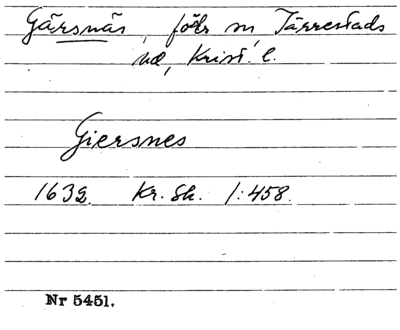 Gärsnäs, förs. m Järrestads
hd, Krist. l.
Giersnes
1632. Kr. Sk. 1:458.
Nr 5451.